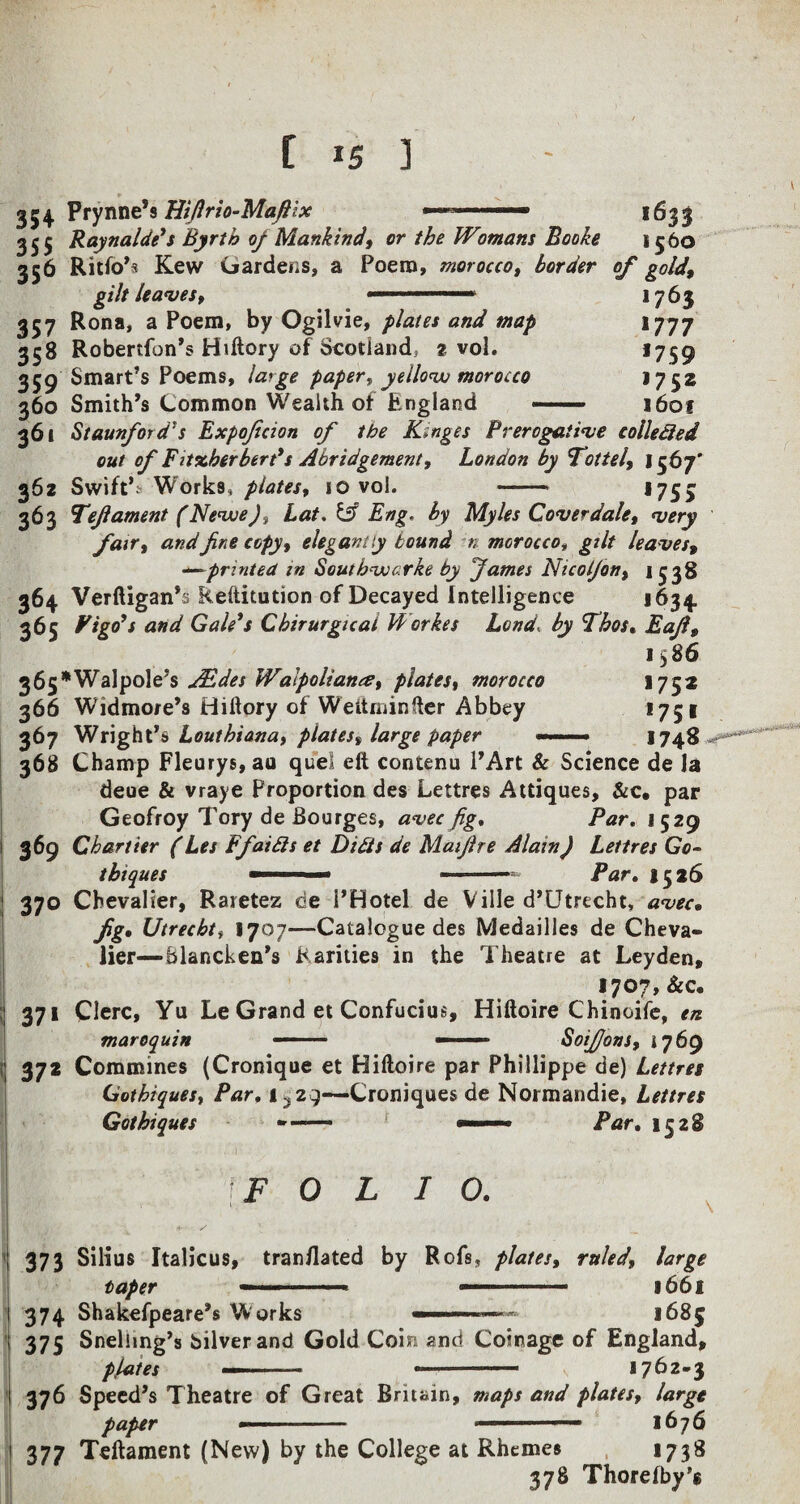 [ 15 ]
354 Prynne's Hiſtrio-Maſtix —— 1633
355 Raynalde's Byrth of Mankind, or the Womans Booke 1560
356 Ritſo's Kew Gardens, a Poem, morocco, border of gold,
gilt leaves, —— 1763
357 Rona, a Poem, by Ogilvie, plates and map 1777
358 Robertſon's Hiſtory of Scotland, 2 vol. 1759
359 Smart's Poems, large paper, yellow morocco 1752
360 Smith's Common Wealth of England —— 1601
361 Staunford's Expoſicion of the Kinges Prerogative collected
out of Fitzherbert's Abridgement, London by Tottel, 1567
362 Swift's Works, plates, 10 vol. —— 1755
363 Teſtament (Newe), Lat. & Eng. by Myles Coverdale, very
fair, and fine copy, elegantly bound in morocco, gilt leaves,
—printed in Southwarke by James Nicolſon, 1538
364 Verſtigan's Reſtitution of Decayed Intelligence 1634
365 Vigo's and Gale's Chirurgical Workes Lond. by Thos. Eaſt,
1586
365*Walpole's Ædes Walpolianæ, plates, morocco 1752
366 Widmore's Hiſtory of Weſtminſter Abbey 1751
367 Wright's Louthiana, plates, large paper —— 1748
368 Champ Fleurys, au quel eſt contenu l'Art & Science de la
deue & vraye Proportion des Lettres Attiques, &c. par
Geofroy Tory de Bourges, avec fig. Par. 1529
369 Chartier (Les Ffaicts et Dicts de Maiſtre Alain) Lettres Go-
thiques —— —— Par. 1526
370 Chevalier, Raretez de l'Hotel de Ville d'Utrecht, avec.
fig. Utrecht, 1707—Catalogue des Medailles de Cheva-
lier—Blancken's Rarities in the Theatre at Leyden,
1707, &c.
371 Clerc, Yu Le Grand et Confucius, Hiſtoire Chinoiſe, en
maroquin —— —— Soiſſons, 1769
372 Commines (Cronique et Hiſtoire par Phillippe de) Lettres
Gothiques, Par. 1529—Croniques de Normandie, Lettres
Gothiques —— —— Par. 1528
FOLIO.
373 Silius Italicus, tranſlated by Roſs, plates, ruled, large
paper —— —— 1661
374 Shakeſpeare's Works —— 1685
375 Snelling's Silver and Gold Coin and Coinage of England,
plates —— —— 1762-3
376 Speed's Theatre of Great Britain, maps and plates, large
paper —— —— 1676
377 Teſtament (New) by the College at Rhemes 1738
378 Thoreſby's